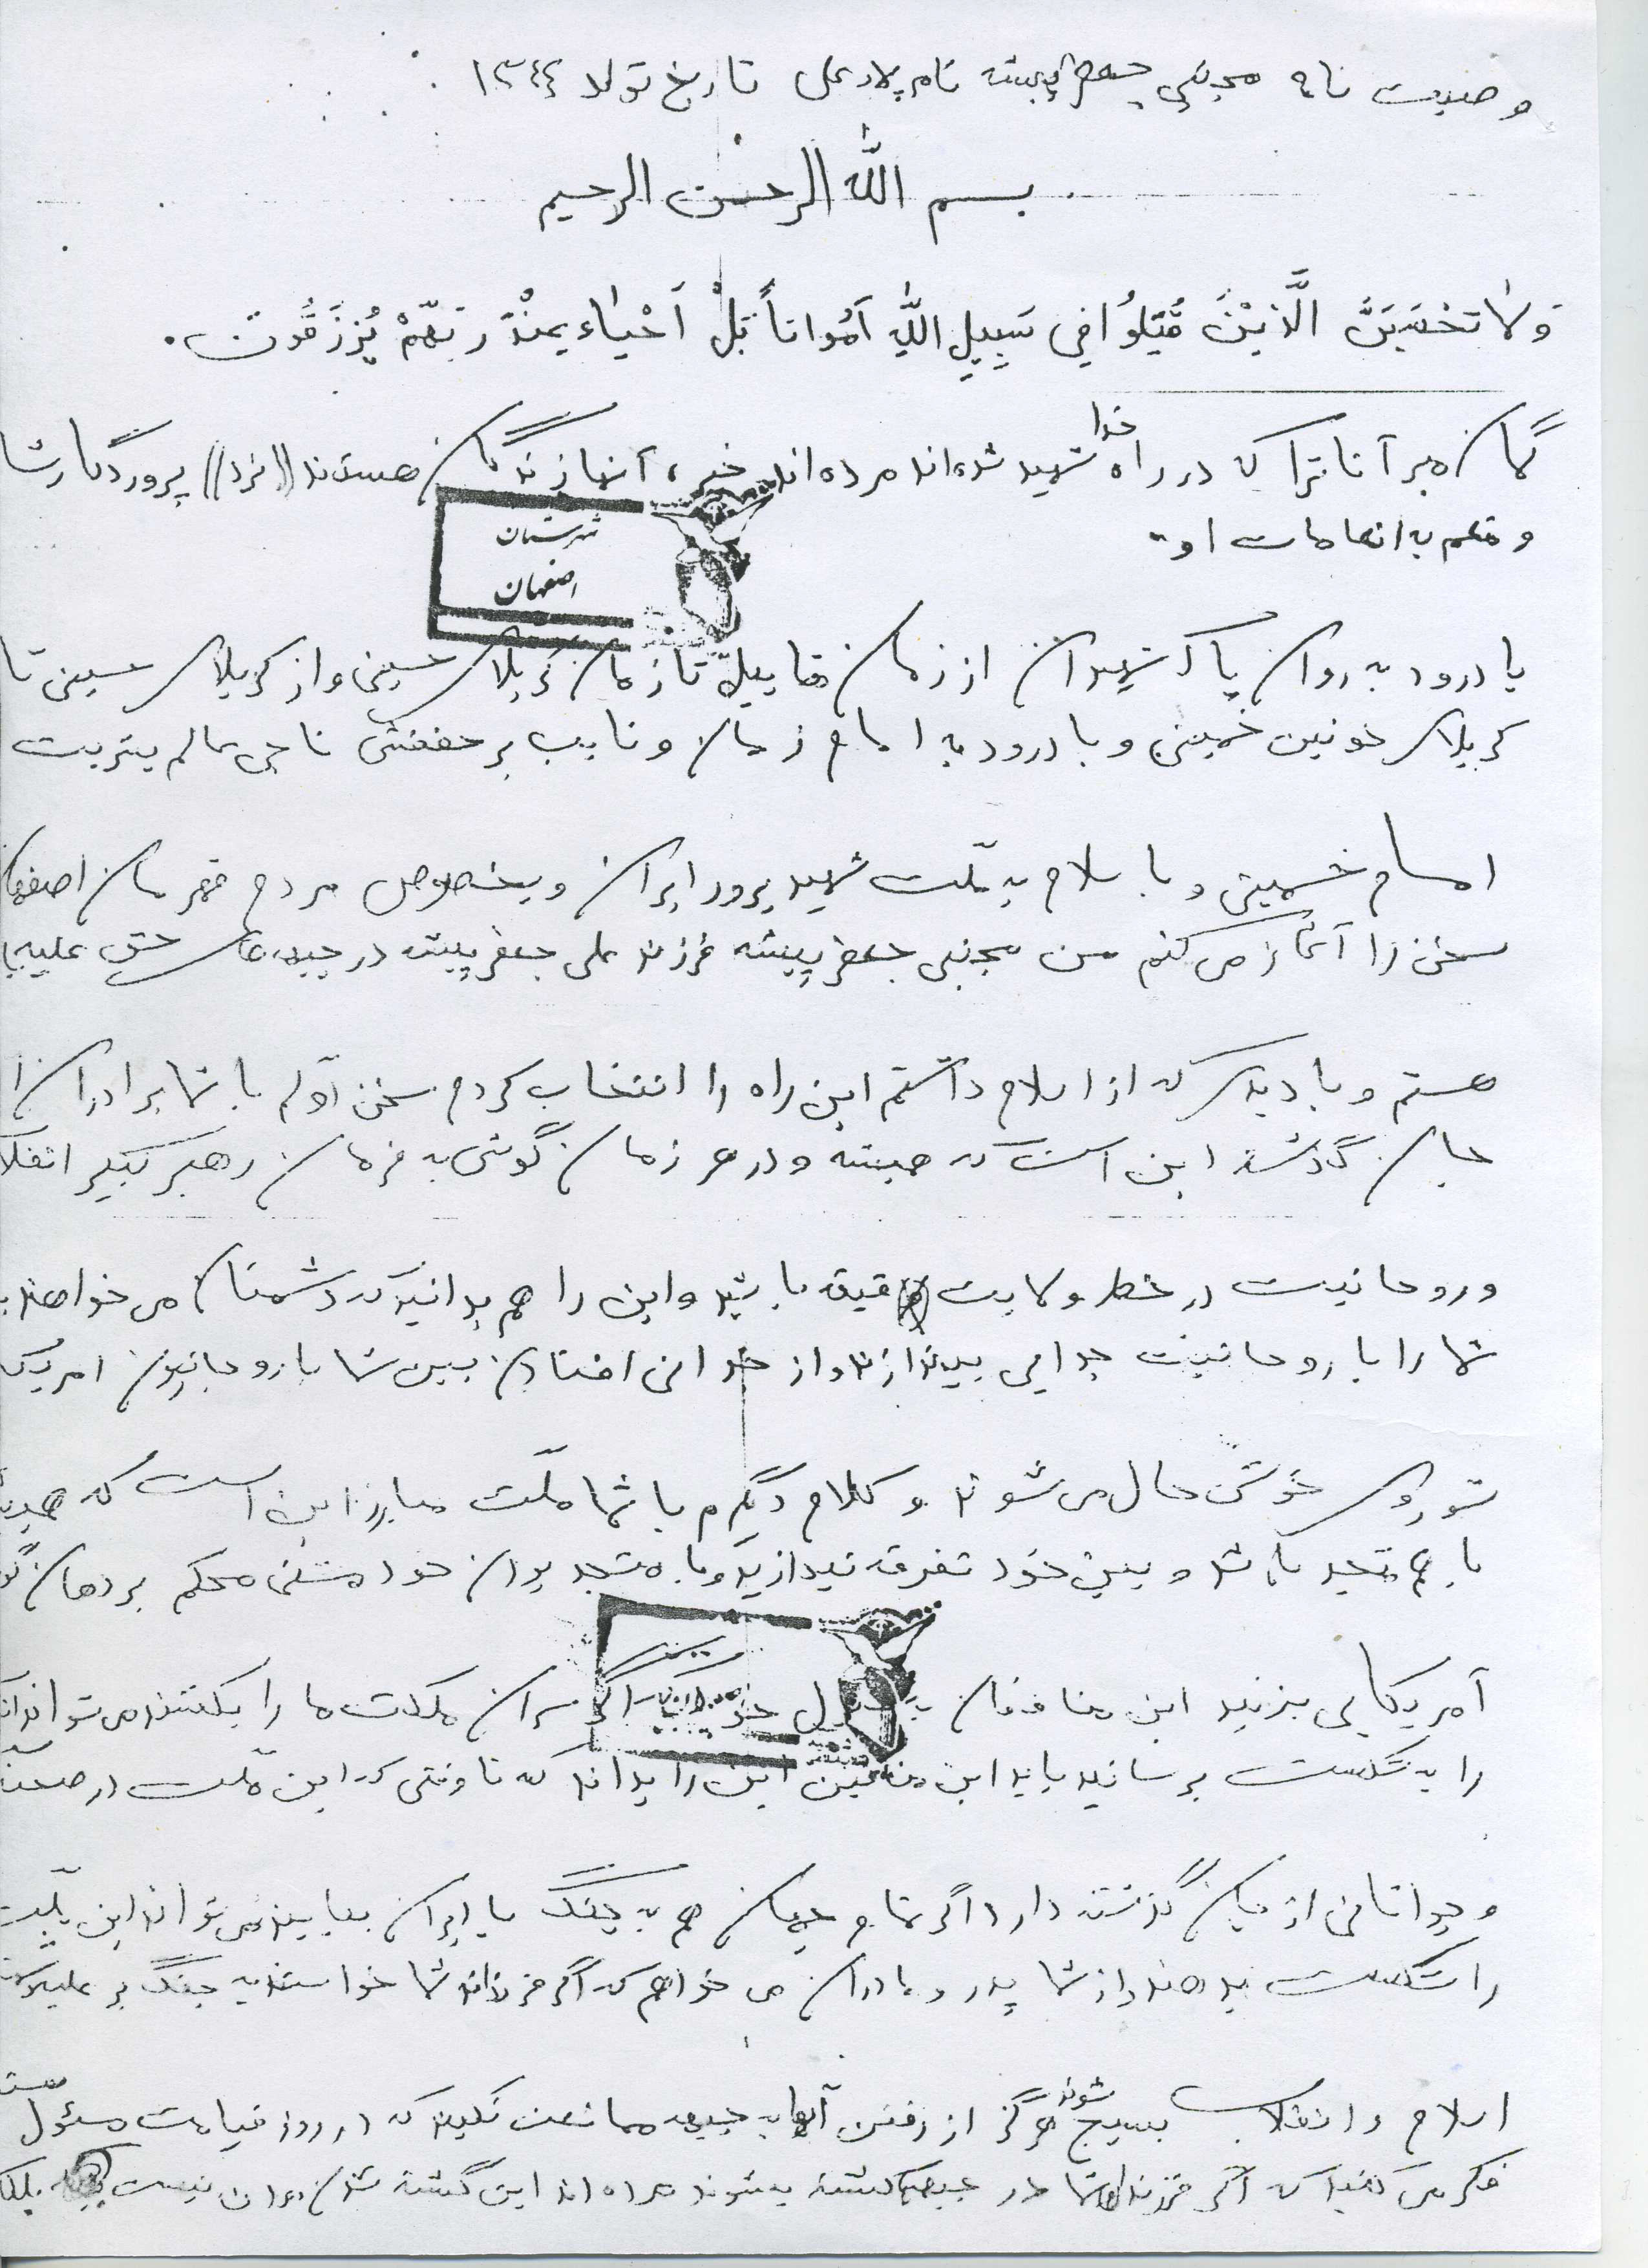 وصیت نامه مجتبی جعفرپیشه نام پدر علی تاریخ تولد ۱۳۴۴
بسم الله الرحمن الرحیم
وَلا تَحْسَبَنَّ الَّذیْنَ قُتِلُوُا فِي سَبِيلِ اللّهِ اَمُواتاً بَلْ اَحْیٰاء عِنْدَ رَبّهّمْ یُرْزَقُونَ.
گمان مبر آنانرا که در راه خدا شهید شده‌اند مرده‌اند خیر، آنها زندگان هستند ((نزد)) پروردگارشا
و متنعم به انعامات او-
شهرستان
اصفهان
با درود به روان پاک شهیدان از زمان هابیل تا زمان کربلای حسینی و از کربلای حسینی تا
کربلای خونین خمینی و با درود به امام زمان و نایب بر حقش ناجی عالم بشریت
امام خمینی و با سلام به ملّت شهیدپرور ایران و بخصوص مردم قهرمان اصفها
سخن را آغاز می‌کنم من مجتبی جعفرپیشه فرزند علی جعفرپیشه در جبهه‌های حق علیه با
هستم و با دیدی که از اسلام داشتم این راه را انتخاب کردم سخن اوّلم با شما برادران ا
جان گذشته این است که همیشه و در هر زمان گوش به فرمان رهبر کبیر انقلا
و روحانیت در خط ولایت فقیه باشید و این را هم بدانید که دشمنان می‌خواهند ب
شما را با روحانیت جدایی بیندازند و از جدائی افتادن بین شما با روحانیون امریکا
شوروی خوش حال می‌شوند و کلام دیگرم با شما ملّت مبارز این است که همیشه
با هم متحد باشد و بین خود تفرقه نیدازید و با متحد بودن خود مشتی محکم بر دهان
آمریکایی بزنید این منافقان به خیال خود اگر سران مملکت ما را بکشند می‌تواند
را به شکست برسانید باید این منافقین این را بداند که تا وقتی که این ملّت در صحنه
و جوانانی از جان گذشته دارد اگر تمام جهان هم به جنگ با ایران بیایند نمی‌تواند این ملّت
را شکست بدهند و از شما پدر و مادران می خواهم که اگر فرزندان شما خواستند به جنگ بر علیه
اسلام و انقلاب بسیج شوند هرگز از رفتن آنها به جبهه ممانعت نکنید که در روز قیامت مسئول هست
فکر می کنید که اگر فرزندان شما در جبهه کشته بشوند مرده اند این کشته شدن مردن نیست بلکه